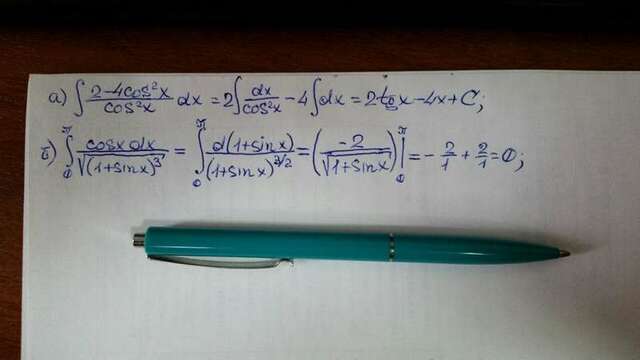 а) ∫ (2-4cos²x)/(cos²x) dx = 2∫ dx/(cos²x) - 4∫dx = 2tgx - 4x + C;
б) ∫₀^π (cosxdx)/(√(1+sinx)³) = ∫₀^π (d(1+sinx))/((1+sinx)^(3/2)) = ((-2)/(√(1+sinx)))|₀^π = - 2/1 + 2/1 = 0;